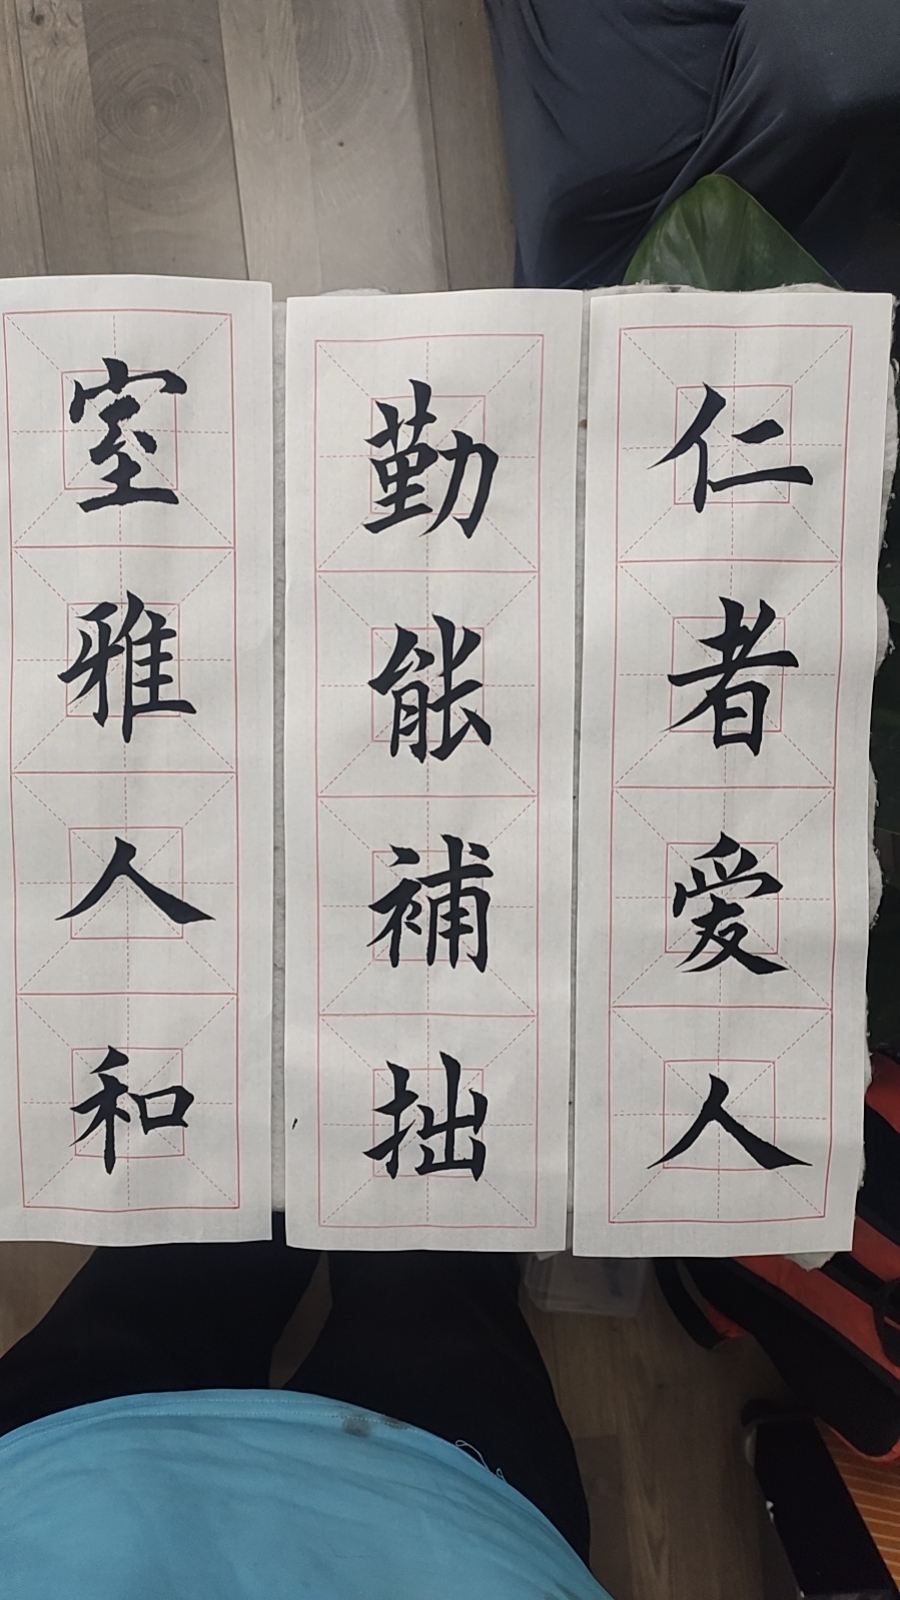 仁者爱人
勤能補拙
室雅人和